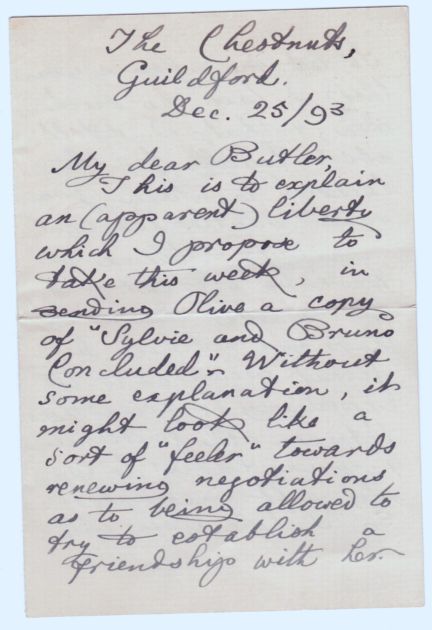 The Chestnuts,
Guildford.
Dec. 25/93
My dear Butler,
This is to explain
an (apparent) liberty
which I propose to
take this week, in
sending Olive a copy
of "Sylvie and Bruno
Concluded". Without
some explanation, it
might look like a
sort of "feeler" towards
renewing negotiations
as to being allowed to
try to establish a
friendship with her.